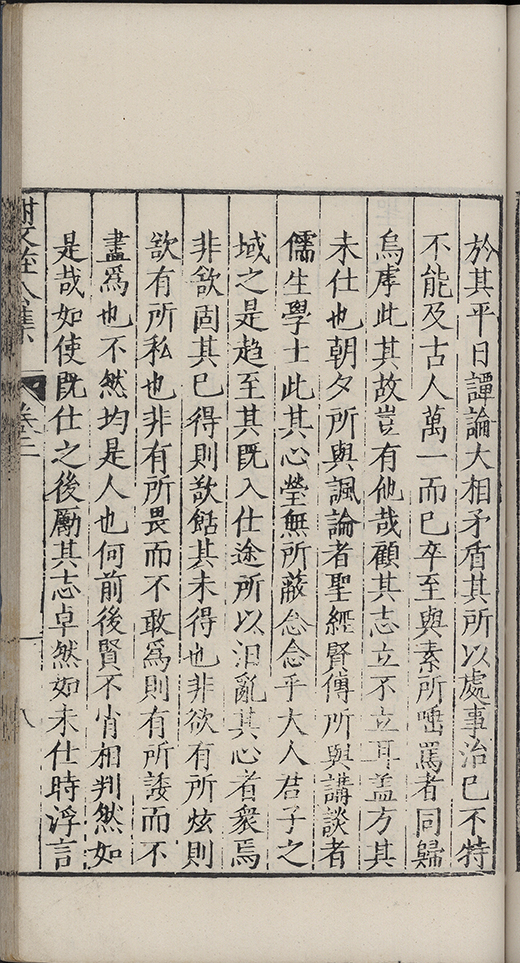 於其平日譚論大相矛盾其所以處事治己不特
不能及古人萬一而已卒至與素所唾罵者同歸
烏虖此其故豈有他哉顧其志立不立耳盖方其
未仕也朝夕所與諷論者聖經賢傳所與講談者
儒生學士此其心瑩無所蔽念念乎大人君子之
域之是趋至其既入仕途所以汩亂其心者衆焉
非欲固其已得則歆餂其未得也非欲有所炫則
欲有所私也非有所畏而不敢爲則有所諉而不
盡爲也不然均是人也何前後賢不肖相判然如
是哉如使既仕之後勵其志卓然如未仕時浮言
卷二
八